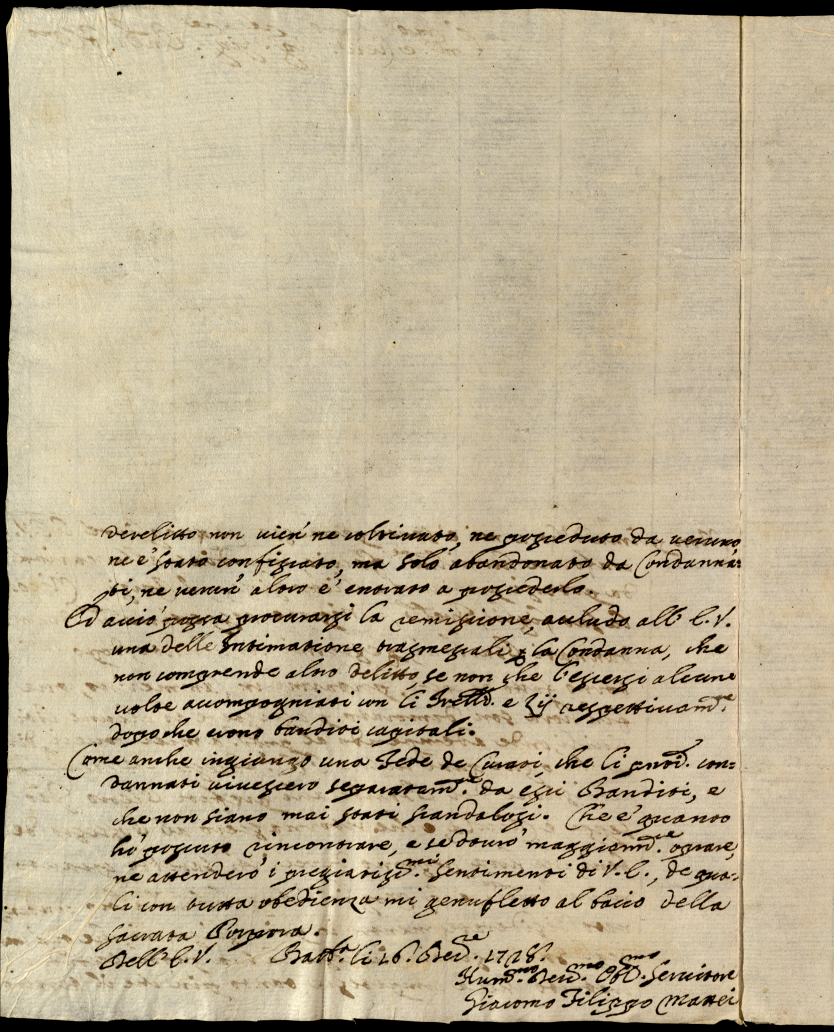 derelitto non vien' ne coltivato, ne posseduto da veruno,
ne è stato confiscato, ma solo abandonato da Condanna:
ti, ne verun' altro è entrato a possederlo.
Ed acciò possa procurarsi la remissione, accludo all' E. V.
una delle Intimatione trasmessali p la Condanna, che
non comprende altro delitto, se non che l'essersi alcune
volte accompagniati con li Fratelli e Zij respettivam.te
dopo che erono banditi capitali.
Come anche ingiungo una Fede de Curati, che li pnti. con=
dannati vivessero separatam.te da essi Banditi, e
che non siano mai stati scandalosi. Che è quanto
hò possuto rincontrare, e se dovrò maggiorm.te oprare,
ne attenderò i pregiatiss.mi sentimenti di V. E., de qua=
li con tutta obedienza mi genufletto al bacio della
sacrata Porpora.
Dell' E. V. li 16. 1728.
Hum.mo Dev.mo Obb.mo Servitore
Giacomo Filippo Mattei